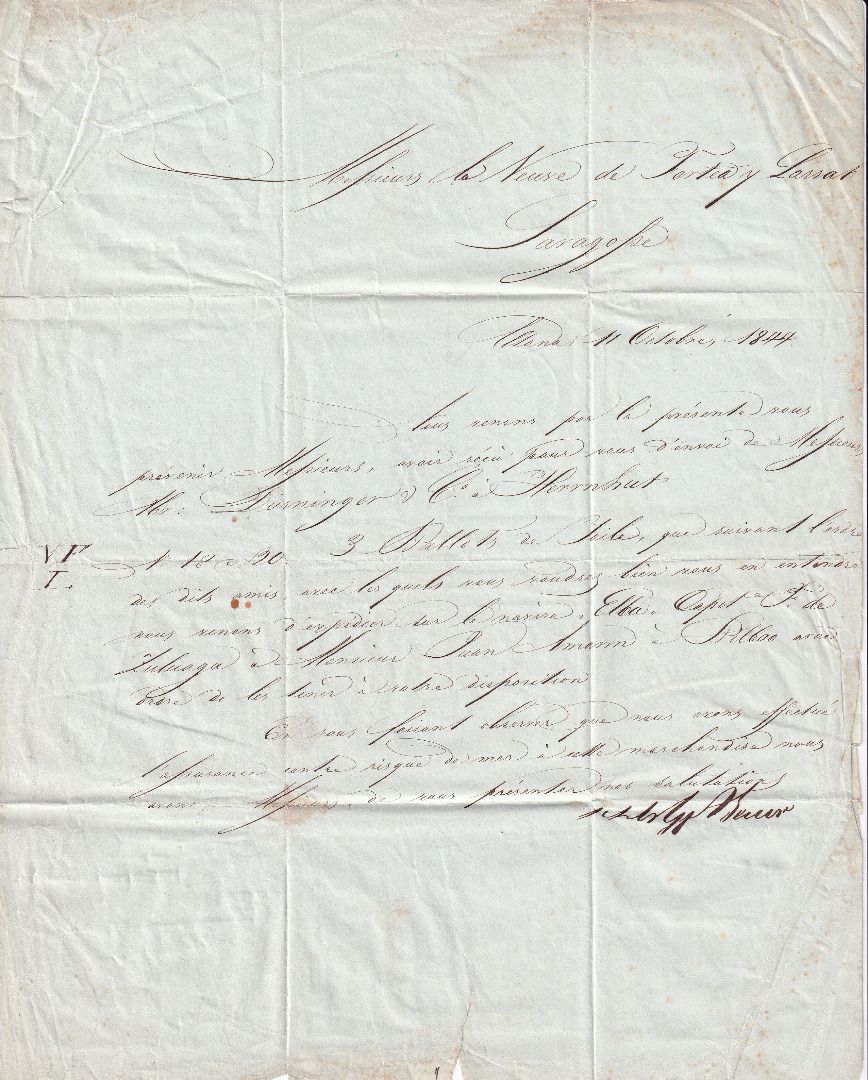 Messieurs la Veuve de Tortea y Lassat
Saragosse
11 Octobre, 1844
Nous venons par la présente vous
prévenir, Messieurs, avoir reçû pour vous d'envoi de Messieurs
Abr: Dürninger & Co. à Herrnhut
V F N 18 a 20. 3 Ballots de Toile, que suivant l'ordre
T. des dits amis avec les quels vous voudrez bien vous en entendre
nous venons d'expédier sur le navire Elba, Capit. F. de
Zuluaga à Monsieur Juan Amann à Bilbao avec
ordre de les tenir à votre disposition
En vous faisant observer que nous avons effectué
l'assurance contre risque de mer à cette marchandise nous
avons, Messieurs, de vous présenter nos salutations